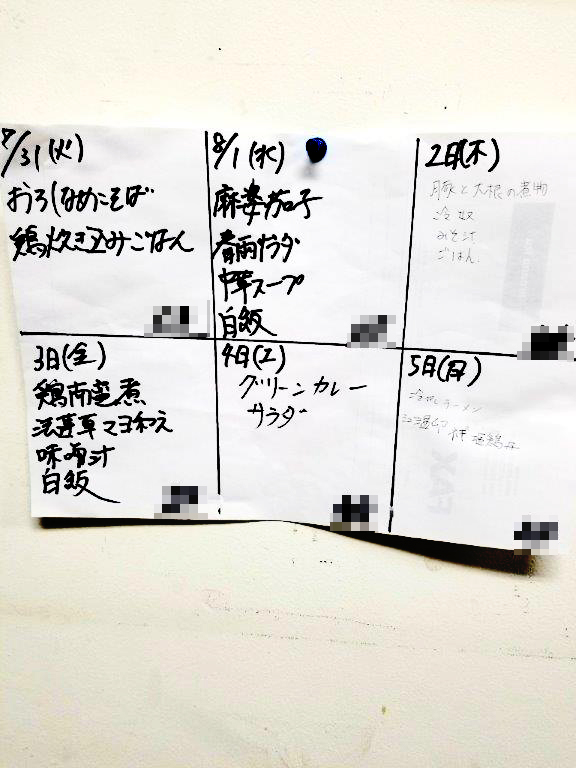 7/31(火)
おろしなめこそば
鶏炊き込みごはん
8/1(水)
麻婆茄子
春雨サラダ
中華スープ
白飯
2日(木)
豚と大根の煮物
冷奴
みそ汁
ごはん
3日(金)
鶏南蛮煮
法蓮草マヨ和え
味噌汁
白飯
4日(土)
グリーンカレー
サラダ
5日(日)
冷やしラーメン
FAX